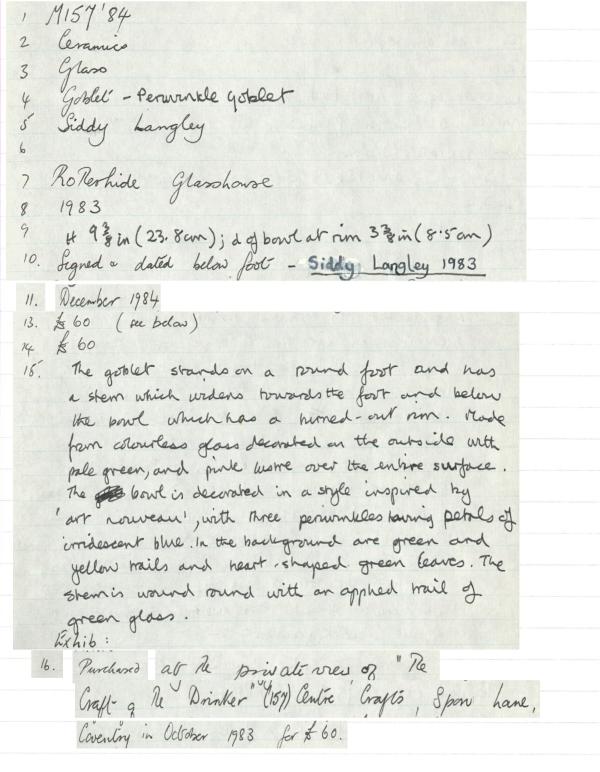 1 M157'84
2 Ceramics
3 Glass
4 Goblet - Periwinkle Goblet
5 Siddy Langley
6
7 Rotherhide Glasshouse
8 1983
9 H 9 3/8 in (23.8cm); d of bowl at rim 3 3/8 in (8.5cm)
10. Signed & dated below foot - Siddy Langley 1983
11. December 1984
13. £60 (see below)
14 £60
15. The goblet stands on a round foot and has
a stem which widens towards the foot and below
the bowl which has a turned-out rim. Made
from colourless glass decorated on the outside with
pale green, and pink lustre over the entire surface.
The bowl is decorated in a style inspired by
'art nouveau', with three periwinkles having petals of
irridescent blue. In the background are green and
yellow trails and heart-shaped green leaves. The
stem is wound round with an applied trail of
green glass.
Exhib:
16. Purchased at the private view of "The
Craft of The Drinker" (157) Centre Crafts, Spon Lane,
Coventry in October 1983 for £60.